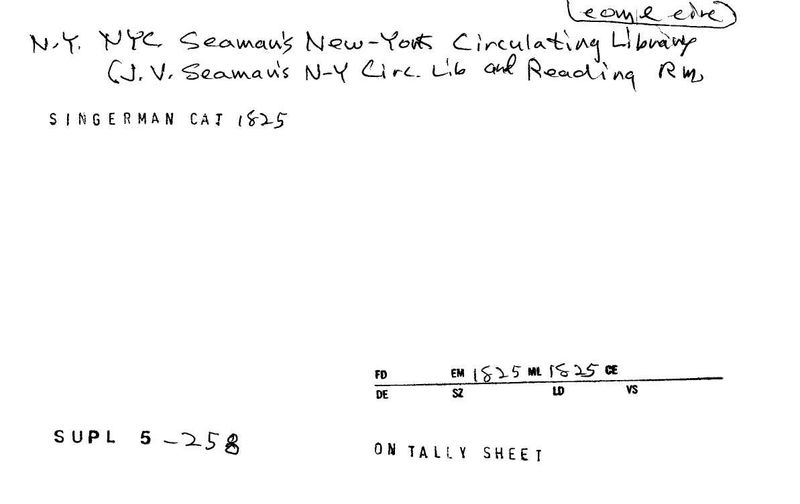 coml circ
N.Y. NYC Seaman's New-York Circulating Library
(J.V. Seaman's N-Y Circ. Lib and Reading Rm
SINGERMAN CAT 1825
FD EM 1825 ML 1825 CE
DE SZ LD VS
SUPL 5-258
ON TALLY SHEET